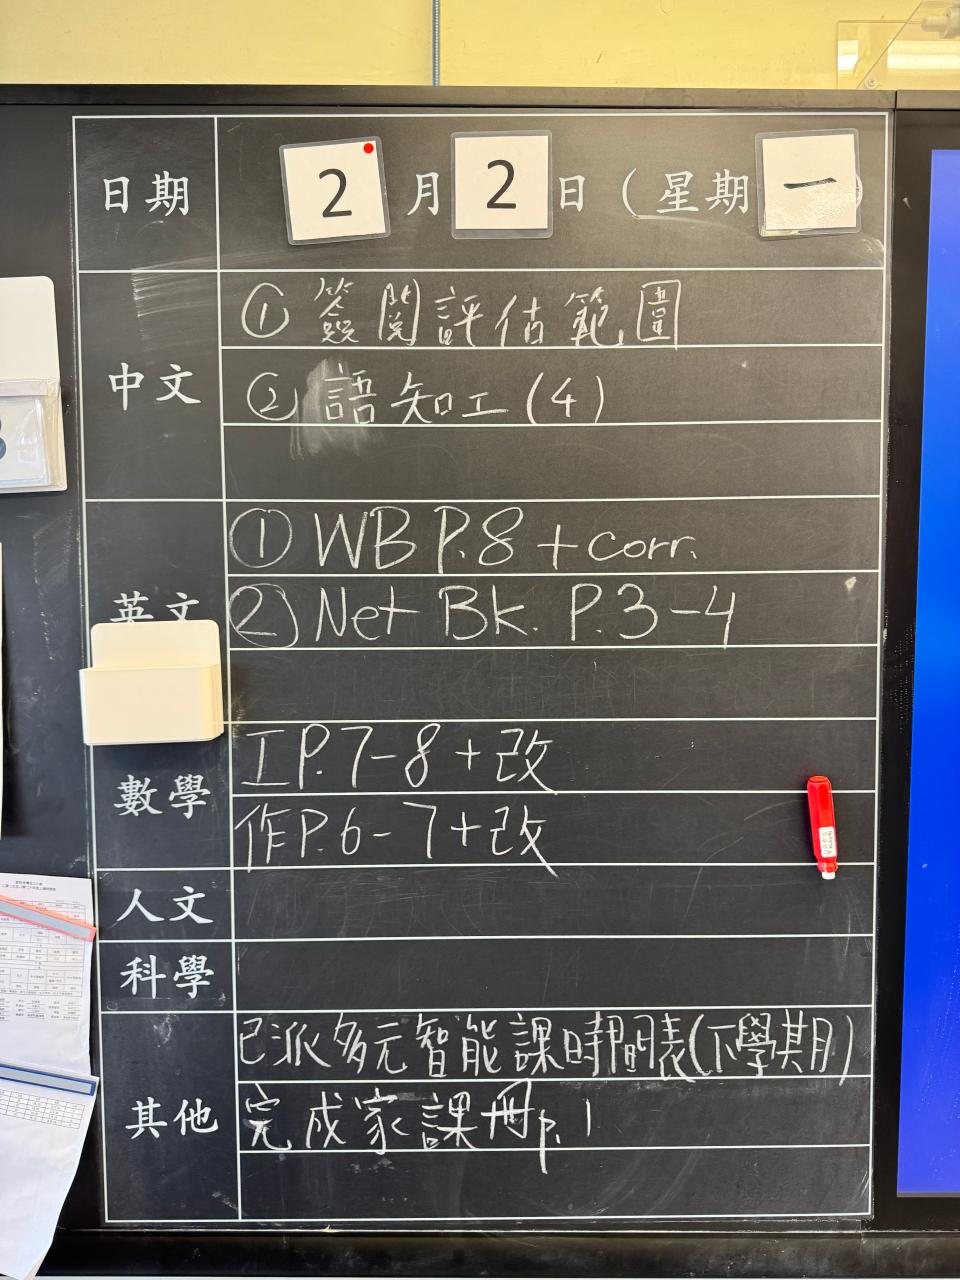 日期 2月2日(星期一)
中文
①簽閱評估範圍
②語知工(4)
英文
① WB P.8 + corr.
② Net Bk. P.3-4
數學
工P.7-8+改
作P.6-7+改
人文
科學
其他
已派多元智能課時間表(下學期)
完成家課冊p.1